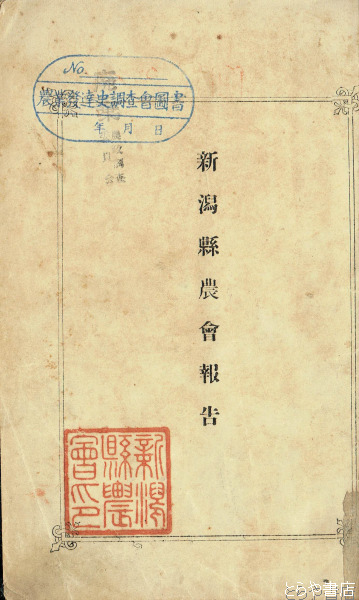 No.
農業發達史調査會圖書
年 月 日
新潟縣農會報告
新潟
縣農
會印
とらや書店